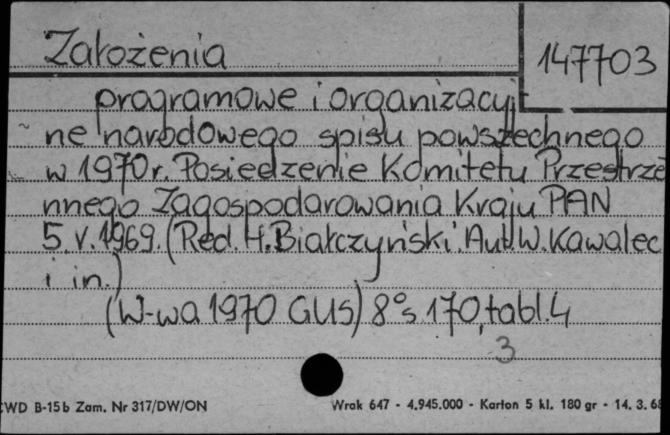 Założenia
147703
programowe i organizacyj
ne narodowego spisu powszechnego
w 1970r. Posiedzenie Komitetu Przestrze
nnego Zagospodarowania Kraju PAN
5.V.1969. (Red. H. Białczyński. Aut. W. Kawalec
i in.)
(W-wa 1970 GUS) 8° s. 170, tabl. 4
3
CWD B-15b Zam. Nr 317/DW/ON
Wrak 647 - 4.945.000 - Karton 5 kl. 180 gr - 14. 3. 68